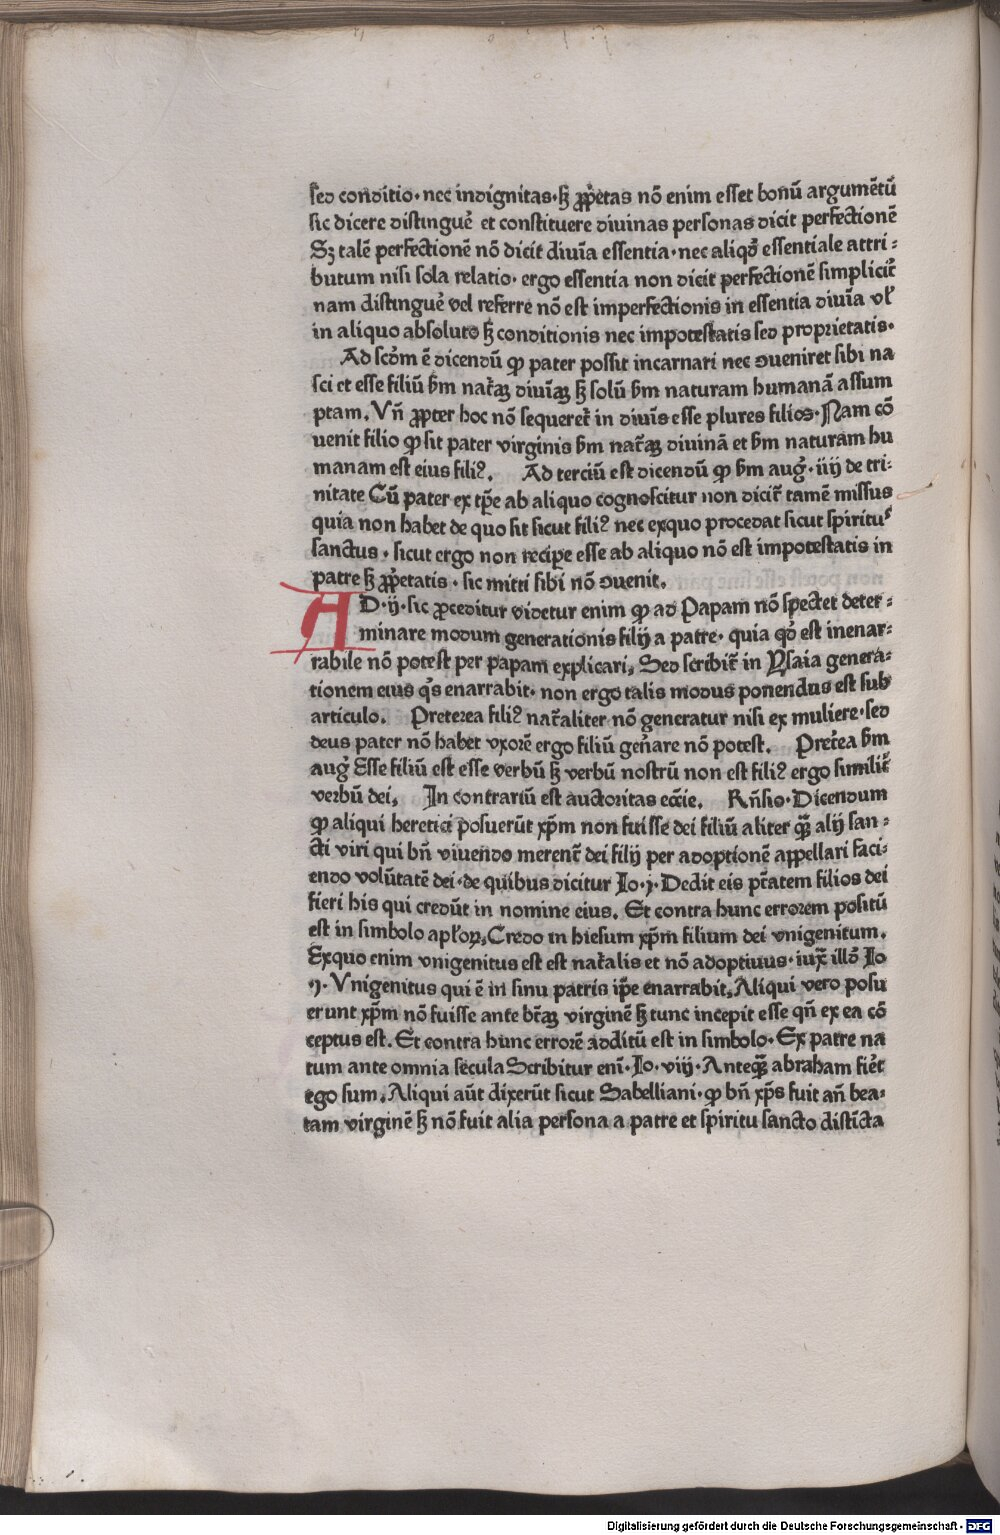 sed conditio· nec indignitas· sꝫ ꝓp̃etas nō enim esset bonū argumētū
sic dicere distinguē et constituere diuinas personas dicit perfectionē
Sꝫ talē perfectionē nō dicit diuĩa essentia· nec aliqd̾ essentiale attri⸗
butum nisi sola relatio· ergo essentia non dicit perfectionē simplicit̃
nam distinguē vel referre nō est imperfectionis in essentia diuĩa vl̾
in aliquo absoluto sꝫ conditionis nec impotestatis sed proprietatis·
Ad scd̾m ē dicendū ꝙ pater possit incarnari nec ↄueniret sibi na
sci et esse filiū ẜm nat̃aꝫ diuĩaꝫ sꝫ solū ẜm naturam humanā assum
ptam. Vn̄ ꝓpter hoc nō sequeret̃ in diuĩs esse plures filios· Nam cō
uenit filio ꝙ sit pater virginis ẜm nat̃aꝫ diuinā et ẜm naturam hu
manam est eius filiꝰ. Ad terciū est dicendū ꝙ ẜm aug̾· iiij de tri⸗
nitate Cū pater ex tp̄e ab aliquo cognoscitur non dicit̃ tamē missus
quia non habet de quo sit sicut filiꝰ nec exquo procedat sicut spirituˢ
sanctus· sicut ergo non recipe esse ab aliquo nō est impotestatis in
patre sꝫ ꝓp̃etatis· sic mitti sibi nō ↄuenit.
AD·ij· sic ꝓceditur videtur enim ꝙ ad Papam nō spectet deter⸗
minare modum generationis filij a patre· quia qd̾ est inenar⸗
rabile nō potest per papam explicari, Sed scribit̃ in Ysaia genera⸗
tionem eius q̾s enarrabit· non ergo talis modus ponendus est sub
articulo. Preterea filiꝰ nat̃aliter nō generatur nisi ex muliere· sed
deus pater nō habet vxorē ergo filiū gen̄are nō potest. Pret̃ea ẜm
aug̾ Esse filiū est esse verbū sꝫ verbū nostrū non est filiꝰ ergo similit̃
verbū dei, In contrariū est auctoritas ecc̄ie. Rn̄sio· Dicendum
ꝙ aliqui heretici posuerūt xp̄m non fuisse dei filiū aliter qꝫ̄ alij san⸗
cti viri qui bn̄ viuendo merent̃ dei filij per adoptionē appellari faci⸗
endo volūtatē dei· de quibus dicitur Io·j· Dedit eis pt̃atem filios dei
fieri his qui credūt in nomine eius. Et contra hunc errorem positū
est in simbolo apl̾oꝝ, Credo in hiesum xp̄m filium dei vnigenitum.
Exquo enim vnigenitus est est nat̃alis et nō adoptiuus· iux̃ illō Io
·j· Vnigenitus qui ē in sinu patris ip̄e enarrabit, Aliqui vero posu
erunt xp̄m nō fuisse ante bt̃aꝫ virginē sꝫ tunc incepit esse qn̄ ex ea cō
ceptus est. Et contra hunc errorē additū est in simbolo· Ex patre na
tum ante omnia secula Scribitur eni̅· Io· viij· Anteqꝫ̄ abraham fiet̃
ego sum. Aliqui aūt dixerūt sicut Sabelliani· ꝙ bn̄ xp̄s fuit an̄ bea⸗
tam virginē sꝫ nō fuit alia persona a patre et spiritu sancto disti̅cta
Digitalisierung gefördert durch die Deutsche Forschungsgemeinschaft - DFG